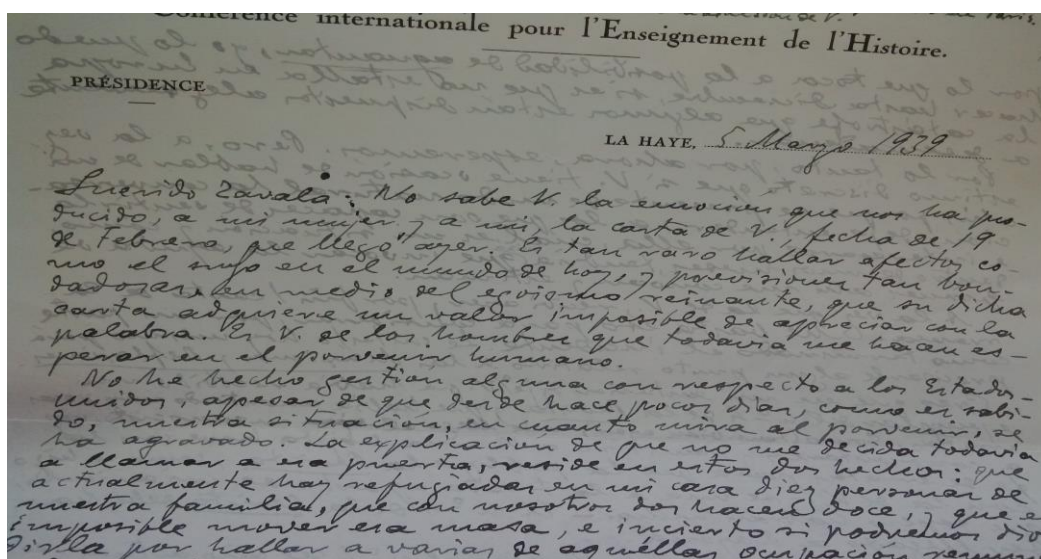 Conférence internationale pour l'Enseignement de l'Histoire.
PRÉSIDENCE
LA HAYE, 5 Marzo 1939
Querido Zavala: No sabe V. la emoción que nos ha pro-
ducido, a mi mujer y a mi, la carta de V., fecha de 19
de Febrero, que llegó ayer. Es tan raro hallar afectos co-
mo el suyo en el mundo de hoy, y previsiones tan bon-
dadosas, en medio del egoismo reinante, que su dicha
carta adquiere un valor imposible de apreciar con la
palabra. Es V. de los hombres que todavia me hacen es-
perar en el porvenir humano.
No he hecho gestion alguna con respecto a los Estados-
unidos, apesar de que desde hace pocos dias, como es sabi-
do, nuestra situacion, en cuanto mira al porvenir, se
ha agravado. La explicacion de que no me decida todavia
a llamar a esa puerta, reside en estos dos hechos: que
actualmente hay refugiadas en mi casa diez personas de
nuestra familia, que con nosotros dos hacen doce, y que e
imposible mover esa masa, e incierto si podremos dis
por hallar a varias de aquéllas ocupacion